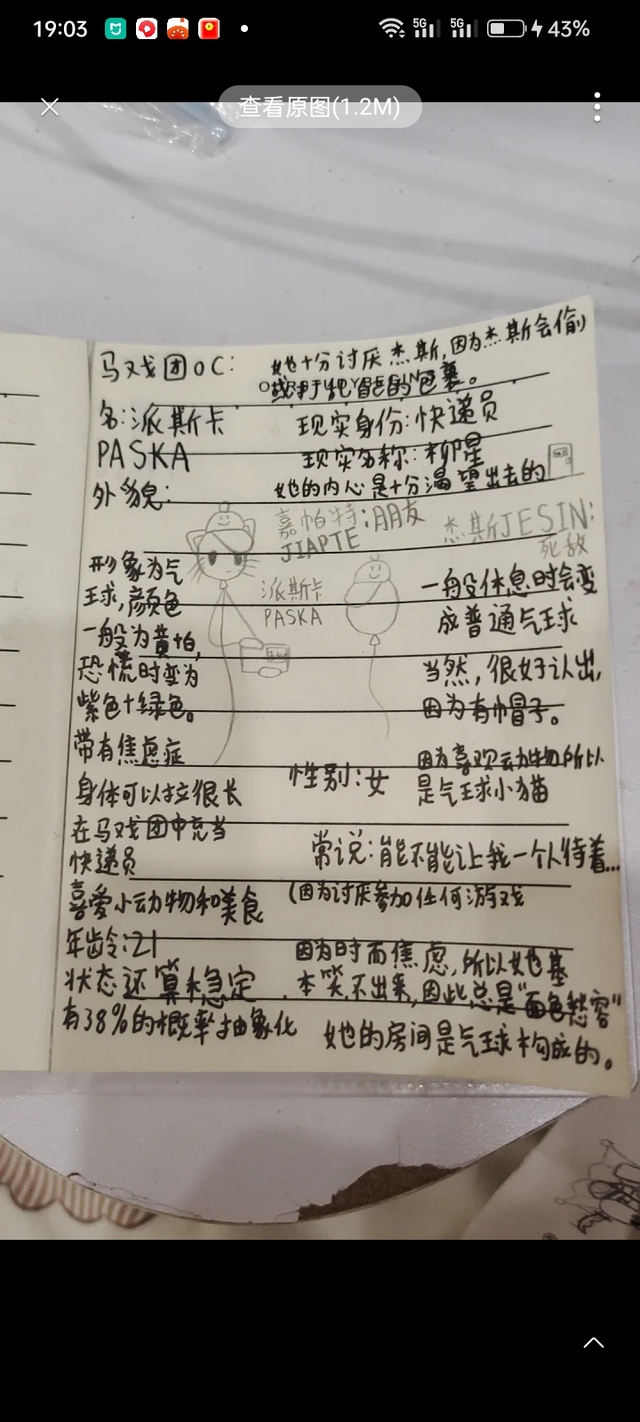 19:03
5G
5G
43%
查看原图(1.2M)
马戏团OC:
她十分讨厌杰斯,因为杰斯会偷
或对于他冒色的包裹。
名:派斯卡
PASKA
现实身份:快递员
现实名称:柳星
她的内心是十分渴望出去的
外貌:
嘉帕特:朋友
JIAPTE
杰斯JESIN:
死敌
派斯卡
PASKA
形象为气
球,颜色
一般为黄怕,
恐慌时变为
紫色+绿色。
带有焦虑症
身体可以拉很长
在马戏团中充当
快递员
喜爱小动物和美食
年龄:21
状态还算稳定
有38%的概率抽象化
一般休息时会变
成普通气球
当然,很好认出,
因为有帽子。
性别:女
因为喜欢动物所以
是气球小猫
常说:能不能让我一个人待着...
(因为讨厌参加任何游戏
因为时而焦虑,所以她基
本笑不出来,因此总是“面色愁容”
她的房间是气球构成的。